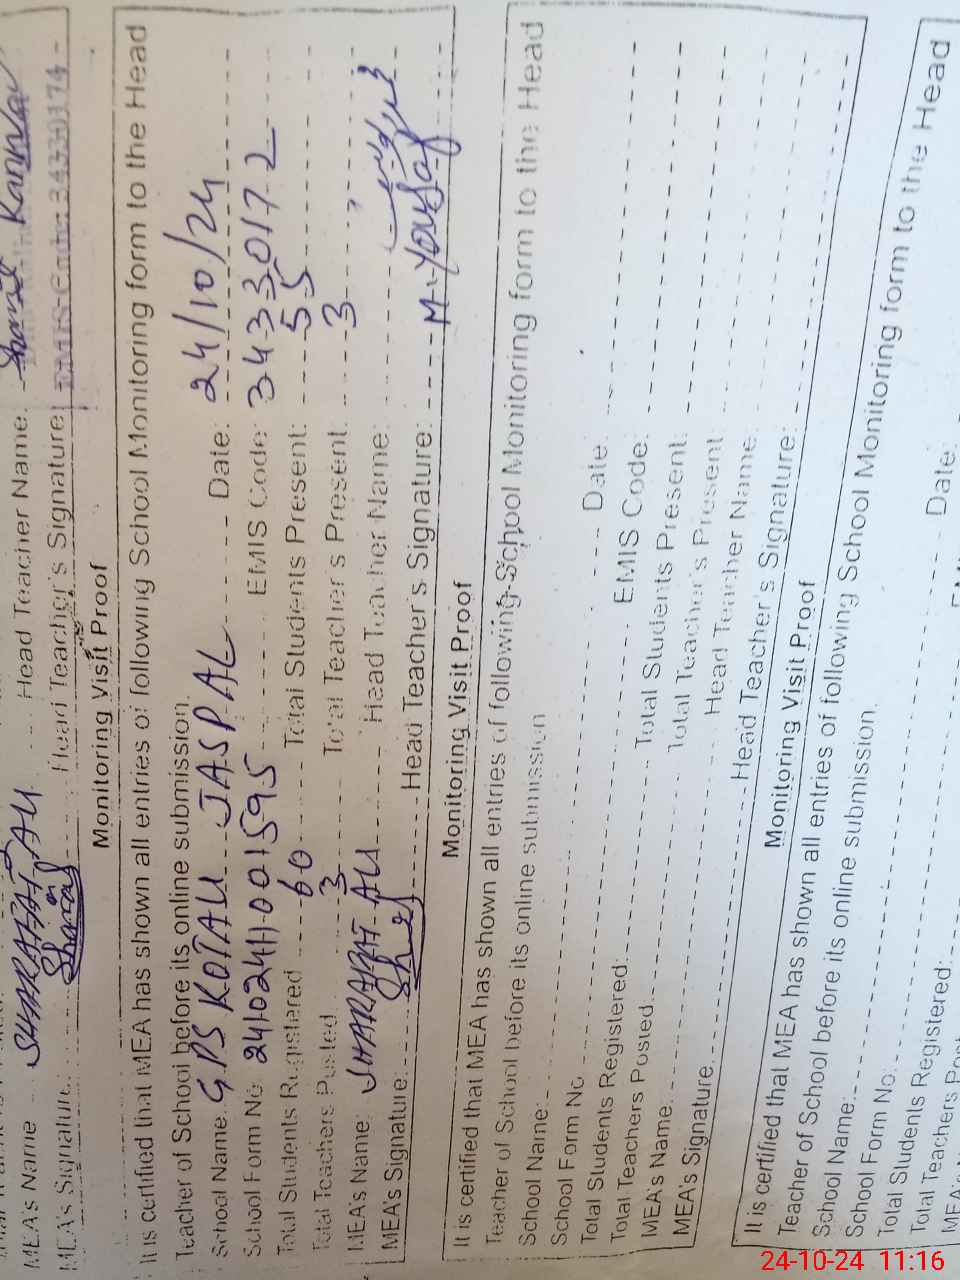 MEA's Name SHARAFAT ALI Head Teacher Name: Kanwal
MEA's Signature Sharaf Head Teacher's Signature
EMIS Code: 34330174
Monitoring Visit Proof
It is certified that MEA has shown all entries of following School Monitoring form to the Head
Teacher of School before its online submission.
School Name: GPS KOTALI JASPAL Date: 24/10/24
School Form No 24102411001595 EMIS Code: 34330172
Total Students Registered 60 Total Students Present: 55
Total Teachers Posted 3 Total Teacher's Present: 3
MEA's Name: SHARAFAT ALI Head Teacher Name:
MEA's Signature: Head Teacher's Signature: M. Yousaf
Monitoring Visit Proof
It is certified that MEA has shown all entries of following School Monitoring form to the Head
Teacher of School before its online submission
School Name: Date:
School Form No EMIS Code:
Total Students Registered: Total Students Present:
Total Teachers Posted: Total Teacher's Present:
MEA's Name: Head Teacher Name:
MEA's Signature: Head Teacher's Signature:
Monitoring Visit Proof
It is certified that MEA has shown all entries of following School Monitoring form to the Head
Teacher of School before its online submission.
School Name: Date:
School Form No:
Total Students Registered:
Total Teachers
24-10-24 11:16